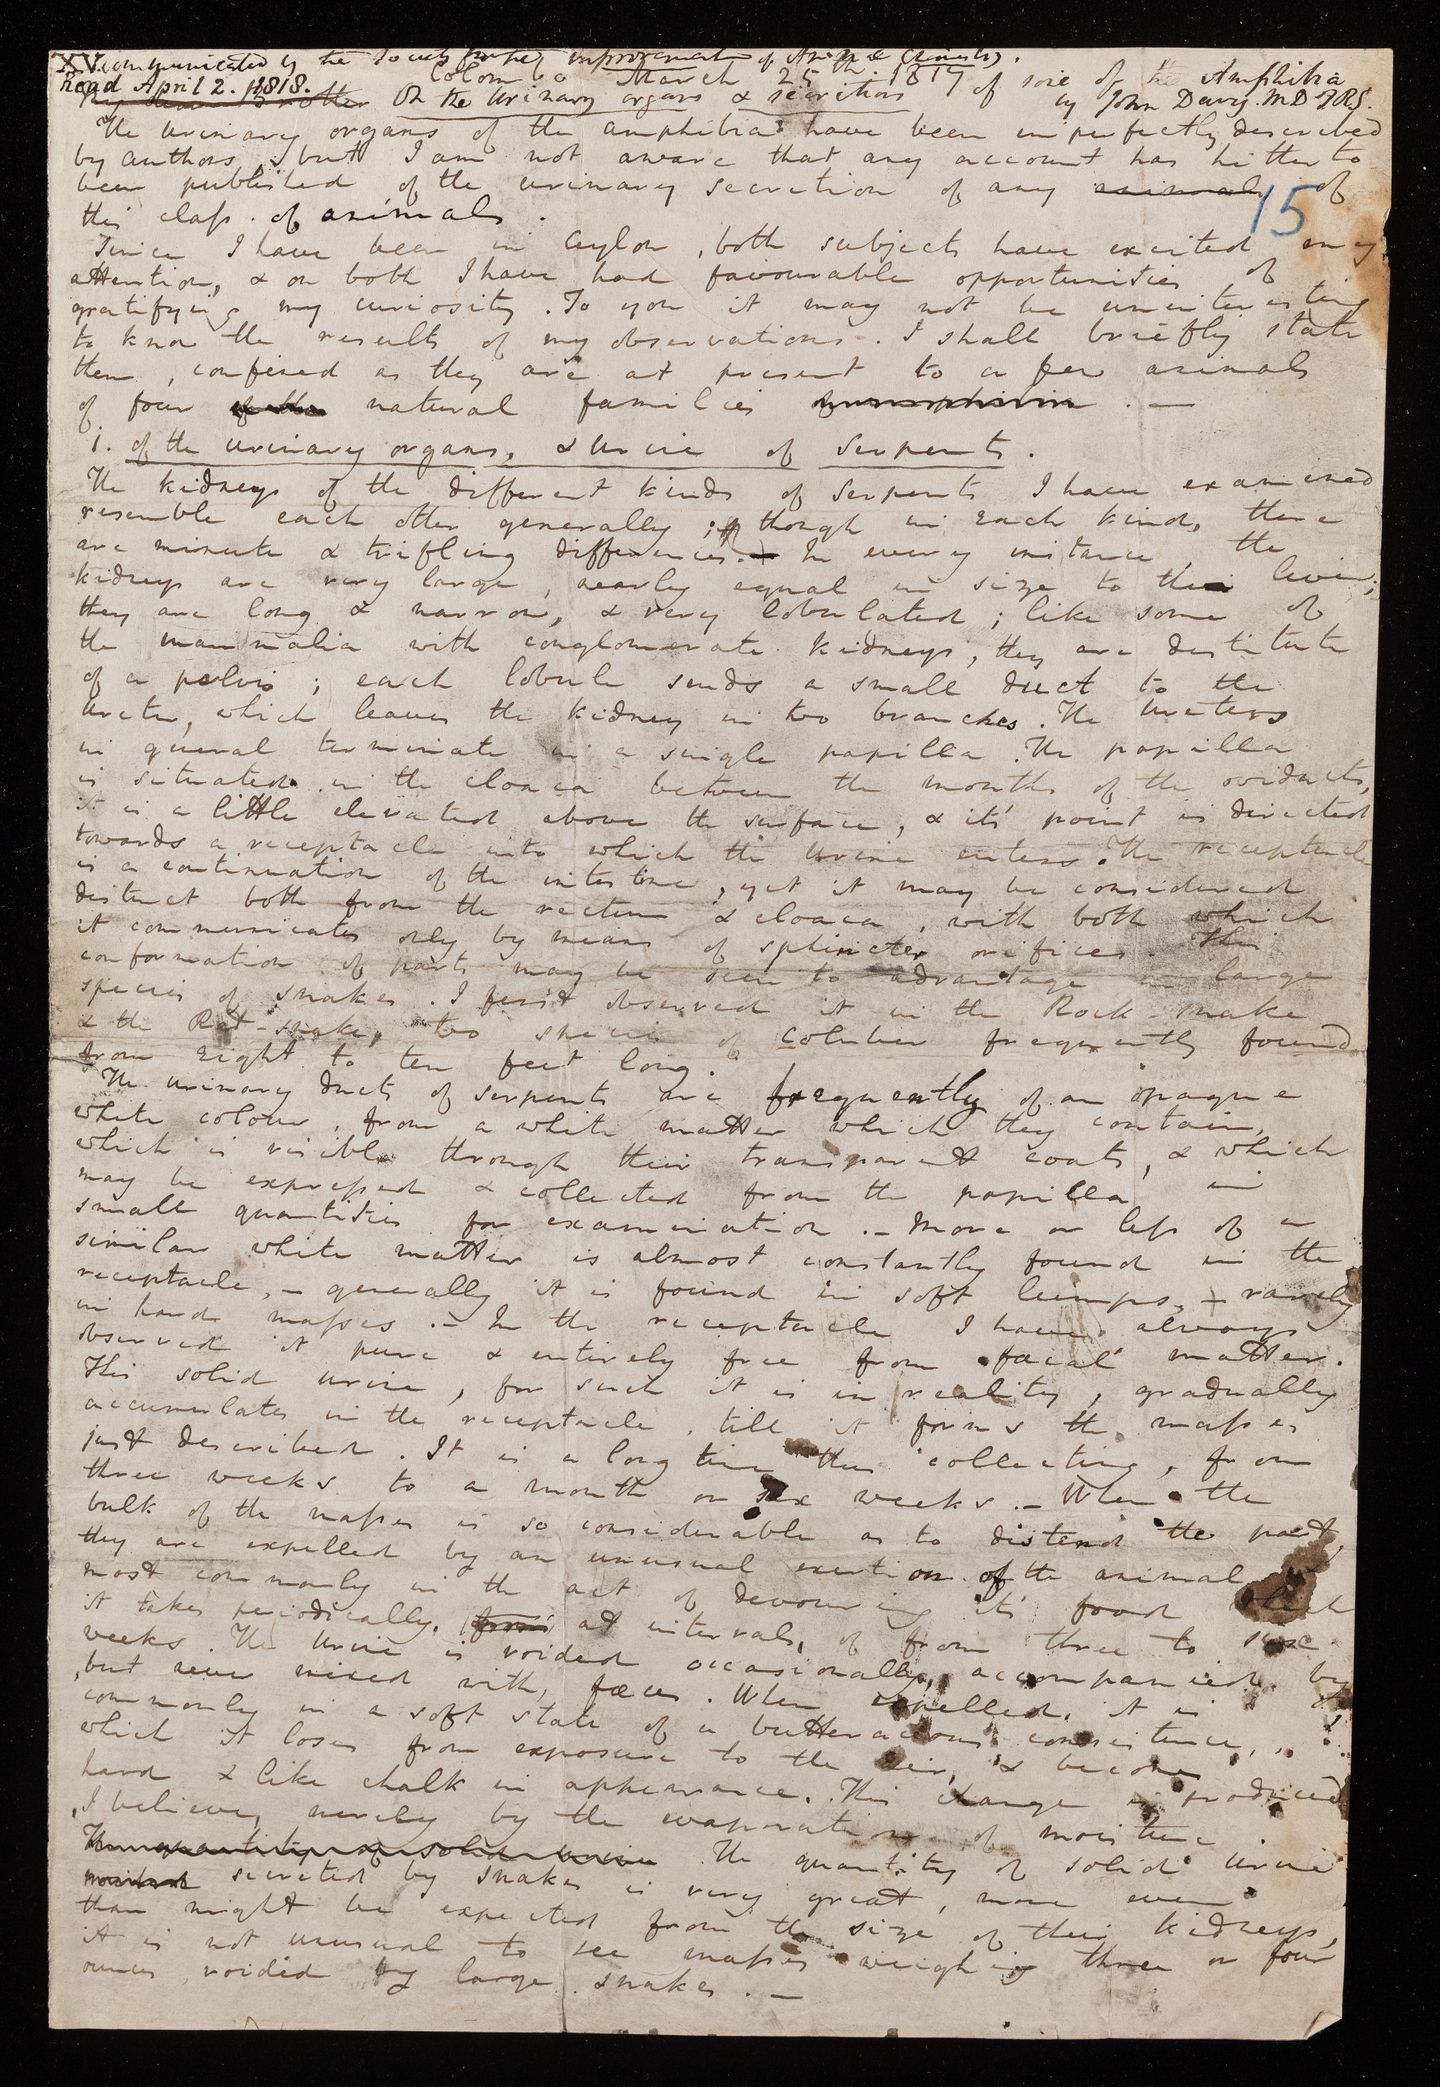 XV. communicated by the Society for the improvement of Animal Chemistry.
Read April 2. 1818.
Colombo March 25th 1817
My dear Brother On the Urinary organs & secretions of some of the Amphibia
by John Davy. M D F.R.S.
The Urinary organs of the amphibia have been imperfectly described
by authors, but I am not aware that any account has hitherto
been published of the urinary secretion of any animals of
this class of animals.
15
Since I have been in Ceylon, both subjects have excited my
attention, & on both I have had favourable opportunities of
gratifying my curiosity. To you it may not be uninteresting
to know the results of my observations. I shall briefly state
them, confined as they are at present to a few animals
of four of the natural families . —
1. of the urinary organs, & urine of Serpents.
The kidneys of the different kinds of Serpents I have examined
resemble each other generally; though in Each kind, there
are minute & trifling differences. — In every instance, the
kidneys are very large, nearly equal in size to the liver;
they are long & narrow, & very lobulated; like some of
the mammalia with conglomerate kidneys, they are destitute
of a pelvis; each lobule sends a small duct to the
Ureter, which leaves the kidney in two branches. The Ureters
in general terminate in a single papilla. The papilla
is situated in the cloaca between the mouths of the oviducts,
it is a little elevated above the surface, & it's point is directed
towards a receptacle into which the Urine enters. The receptacle
is a continuation of the intestine, yet it may be considered
distinct both from the rectum & cloaca, with both which
it communicates only by means of sphincter orifices. This
conformation of parts may be seen to advantage in large
species of snakes. I first observed it in the Rock-snake
& the Rat-snake, two species of Coluber frequently found
from Eight to ten feet long.
The urinary ducts of serpents are frequently of an opaque
white colour, from a white matter which they contain,
which is visible through their transparent coats, & which
may be expressed & collected from the papilla in
small quantities for examination. — More or less of a
similar white matter is almost constantly found in the
receptacle, — generally it is found in soft lumps, — rarely
in hard masses. — In the receptacle I have always
observed it pure & entirely free from fæcal matter.
This solid urine, for such it is in reality, gradually
accumulates in the receptacle, till it forms the masses
just described. It is a long time thus collecting, from
three weeks to a month or six weeks. — When the
bulk of the masses is so considerable as to distend the part,
they are expelled by an unusual exertion of the animal
most commonly in the act of devouring it's food which
it takes periodically, from at intervals, of from three to six
weeks. The Urine is voided occasionally, accompanied by
, but never mixed with, fæces. When expelled, it is
commonly in a soft state of a butteraceous consistence,
which it loses from exposure to the air, & becomes
hard & like chalk in appearance. This change is produced
, I believe, merely by the evaporation of moisture.
The quantity of solid urine The quantity of solid urine
secreted by snakes is very great, more even
than might be expected from the size of their kidneys,
it is not unusual to see masses weighing three or four
ounces voided by large snakes. —